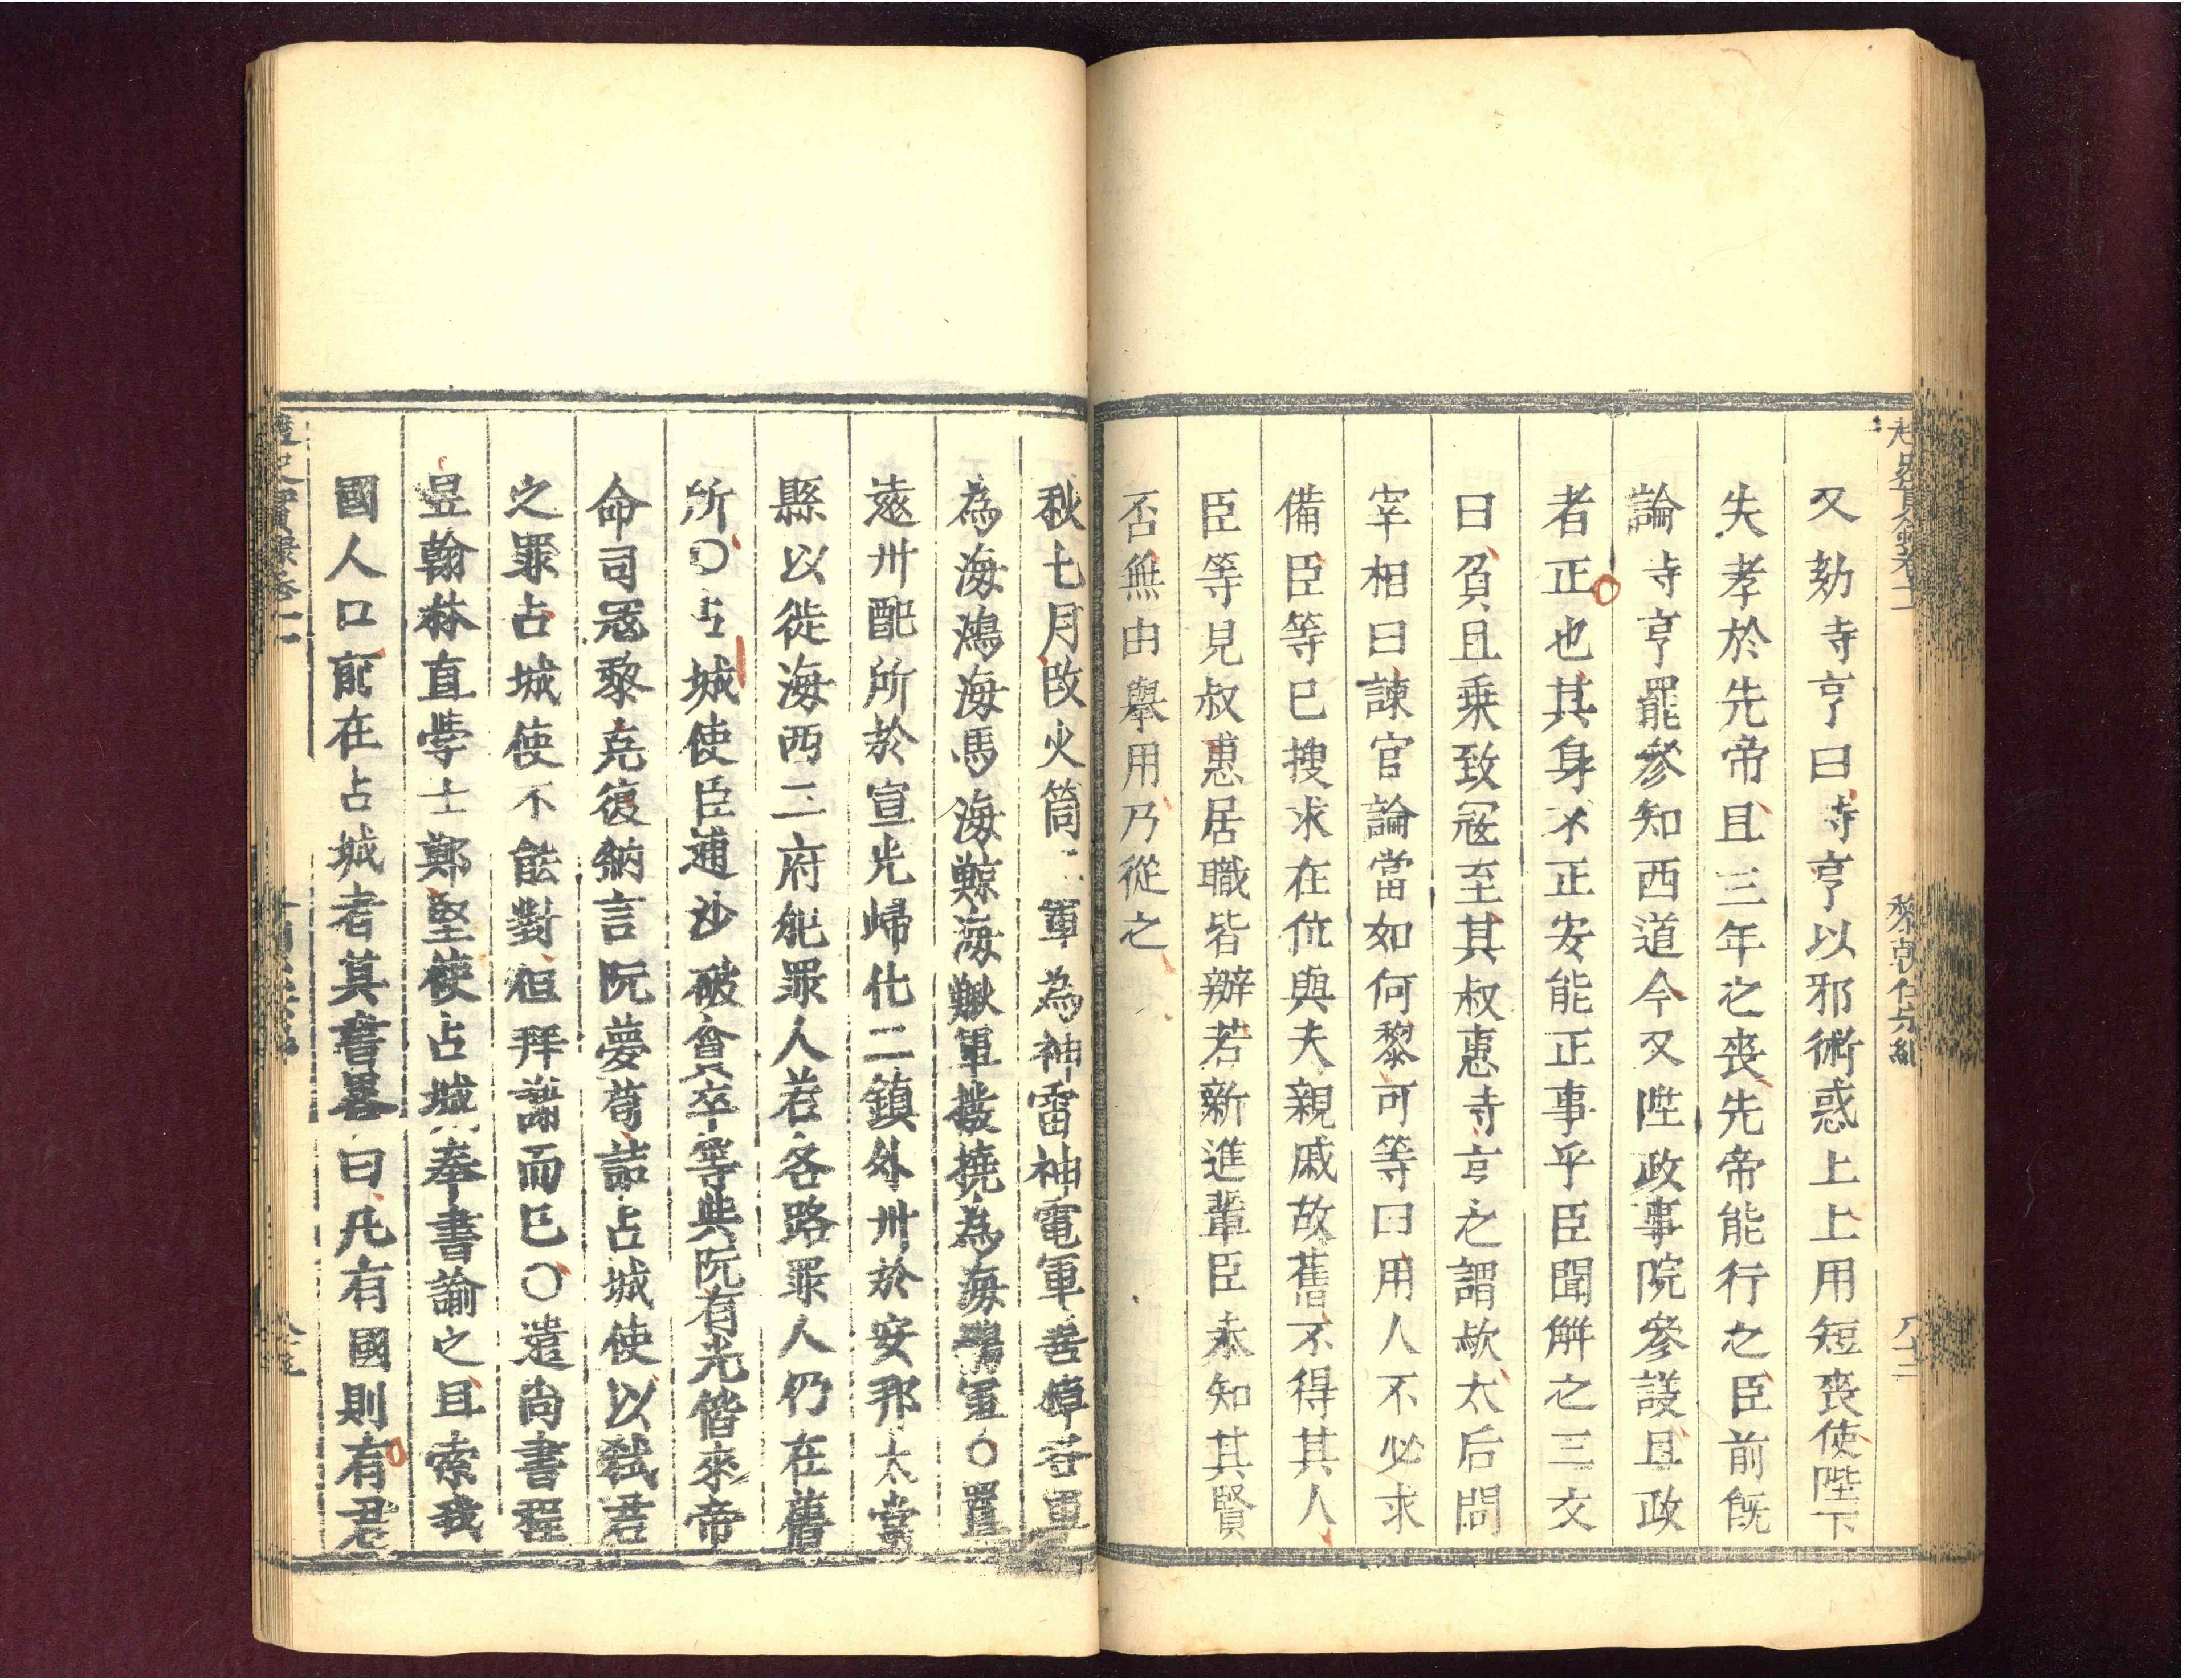 又劾寺亨曰寺亨以邪術惑上上用短喪使陛下
失孝於先帝且三年之喪先帝能行之臣前旣
論寺亨罷參知西道今又陞政事院參議且政
者正也其身不正安能正事乎臣聞觧之三爻
曰負且乗致寇至其叔惠寺亨之謂歟太后問
宰相曰諫官論當如何黎可等曰用人不必求
備臣等已搜求在位與夫親戚故舊不得其人
臣等見叔惠居職皆辦若新進輩臣未知其賢
否無由舉用乃從之
秋七月改火筒軍為神雷神電軍
為海鴻海馬海鯨海鰍軍為海鶻軍○置
遠州配所於宣光歸化二鎮外州於安邦太堂
縣以徙海西二府犯罪人若各路罪人仍在舊
所○占城使臣逋沙破貪卒等與阮有光偕來帝
命司寇黎克復納言阮夢荀詰占城使以弒君
之罪占城使不能對但拜謝而已○遣尚書程
昱翰林直學士鄭堅使占城奉書諭之且索我
國人口前在占城者其書畧曰凡有國則有君
黎朝仁宗紀